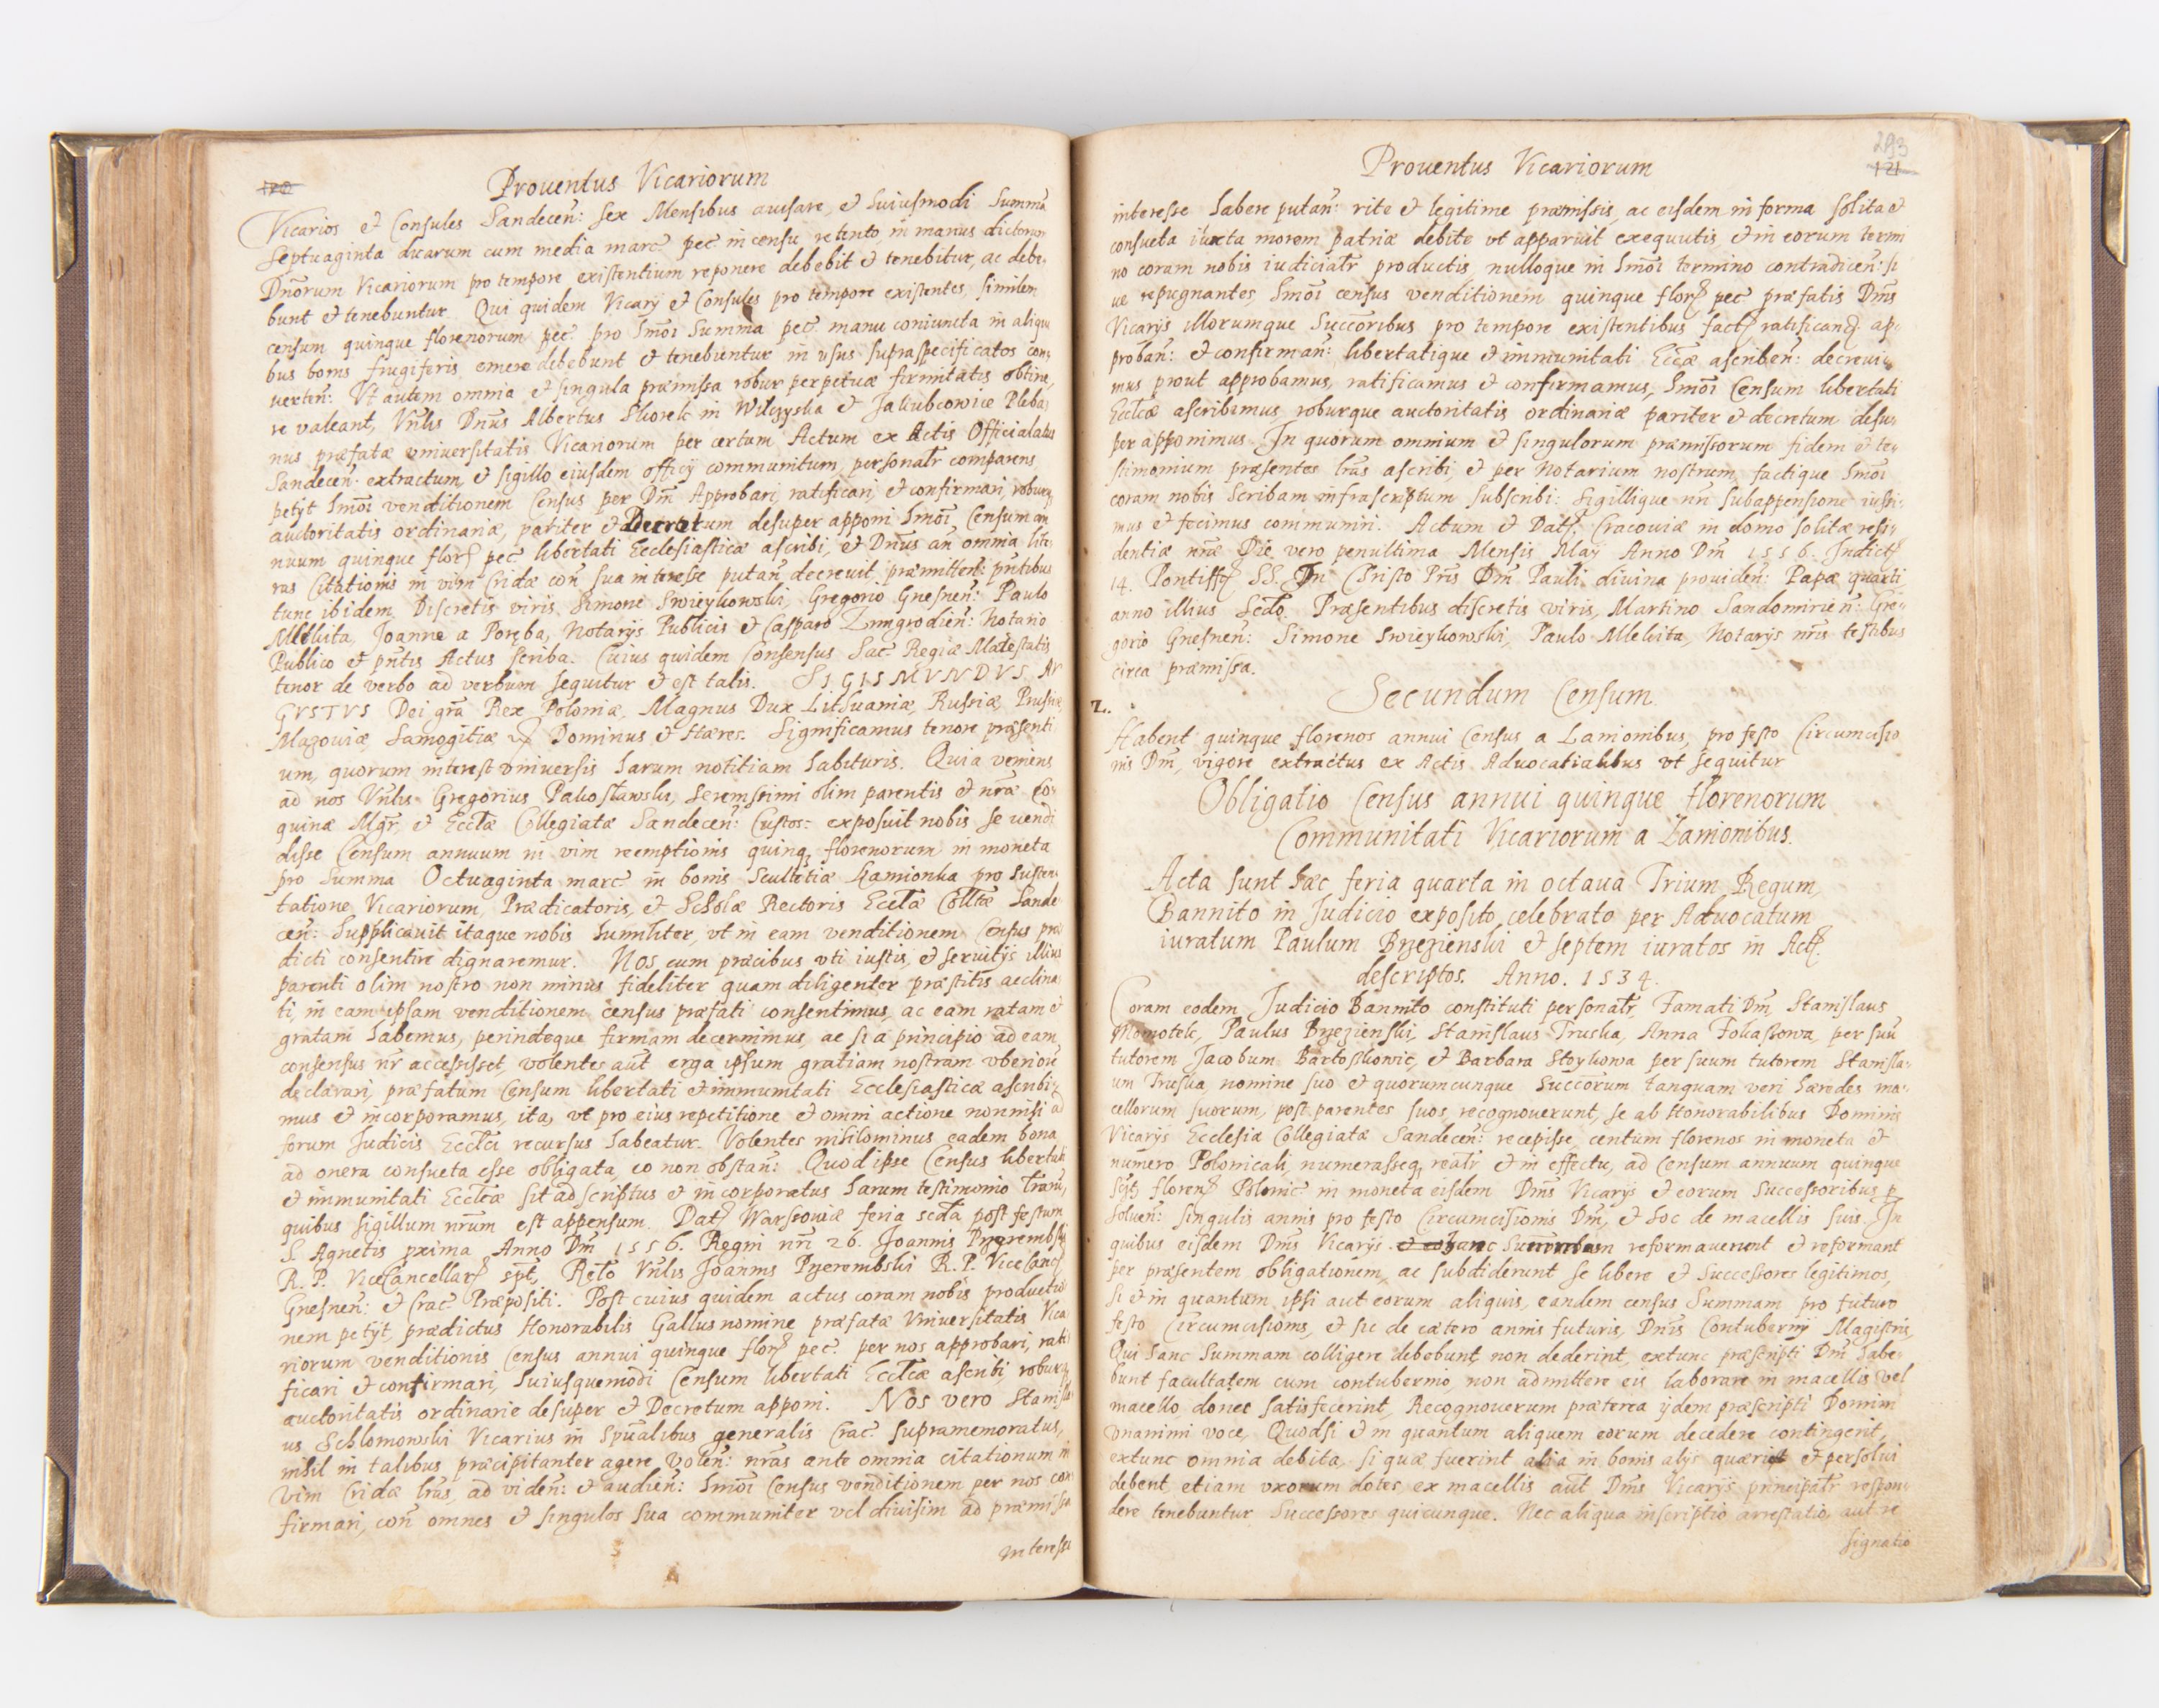 120
Proventus Vicariorum
Vicarios et Consules Sandecen̄: sex Mensibus auisare, et huiusmodi Summā
septuaginta duarum cum media marc̄ pec̄ in censu retento, in manus dictorum
Dnōrum Vicariorum pro tempore existentium reponere debebit et tenebitur, ac debe,
bunt et tenebuntur. Qui quidem Vicarij et Consules pro tempore existentes, similem
censum quinque florenorum pec̄ pro hmōi Summa pec̄ manu coniuncta in aliqui
bus bonis frugiferis, emere debebunt et tenebuntur in vsus supraspecificatos con,
uerten̄: Vt autem omnia et singula præmissa robur perpetuæ firmitatis obtine,
re valeant, Vnlis Dnūs Albertus Skorek in Wilczyska et Jakubcowice Pleba,
nus præfatæ vniuersitatis Vicariorum per certum Actum ex Actis Officialatus
Sandecen̄: extractum, et sigillo eiusdem officij communitum, personalr̄ comparens
petijt hmōi venditionem Census per Dm̄ Approbari, ratificari, et confirmari, roburq
autoritatis ordinariæ, pariter et Decretum desuper apponi hmōi Censum an
nuum quinque flor pec̄ libertati Ecclesiasticæ ascribi, et Dnūs an̄ omnia lite
ras Citationis in vim Cridæ con̄ sua interesse putan̄ decreuit, præmitten̄: pn̄tibus
tunc ibidem Discretis viris Simone Swieykowski, Gregorio Gnesnen̄: Paulo
Mlekita, Joanne a Poręba, Notarijs Publicis et Casparo Zmigrodien̄: Notario
Publico et pn̄tis Actus scriba. Cuius quidem Consensus Sac̄ Regiæ Maiestatis
tenor de verbo ad verbum sequitur et est talis. SIGISMVNDVS AV
GVSTVS Dei grā Rex Poloniæ, Magnus Dux Lithuaniæ, Russiæ, Prussiæ
Mazouiæ Samogitiæ Dominus et Hæres. Significamus tenore præsenti
um, quorum interest vniuersis harum notitiam habituris. Quia veniens
ad nos Vnlis Gregorius Pakosławski, serenissimi olim parentis et nrā Co
quinæ Mgr̄, et Ecclæ Collegiatæ Sandecen̄: Custos: exposuit nobis se vendi
disse Censum annuum in vim reemptionis quinq florenorum in moneta
pro Summa Octuaginta marc̄ in bonis Scultetiæ Kamionka pro susten
tatione Vicariorum, Prædicatoris, et Scholæ Rectoris Ecclæ Colltæ Sande
cen̄: Supplicauit itaque nobis humiliter, vt in eam venditionem Census præ
dicti consentire dignaremur. Nos eum præcibus vti iustis, et seruitijs illius
parenti olim nostro non minus fideliter quam diligenter præstitis acclina
ti, in eam ipsam venditionem census præfati consentimus, ac eam ratam et
gratam habemus, perindeque firmam decernimus, ac si a principio ad eam
consensus nr̄ accessisset, volentes aut̄ erga ipsum gratiam nostram vberiorē
declarari, præfatum Censum libertati et immunitati Ecclesiasticæ ascribi,
mus et incorporamus, ita, vt pro eius repetitione et omni actione nonnisi ad
forum Judicis Eccłci recursus habeatur. Volentes nihilominus eadem bona
ad onera consueta esse obligata, eo non obstan̄: Quod ipse Census libertati
et immunitati Eccłcæ sit adscriptus et incorporatus harum testimonio lrarū,
quibus sigillum nrūm est appensum. Dat Warssouiæ feria sc̄da post festum
S. Agnetis prima Anno Dm̄ 1556. Regni nrī 26. Joannis Przerembski
R. P. ViceCancellar spt̄, Relō Vnlis Joannis Przerembski R. P. ViceCanc
Gnesnen̄: et Crac̄ Præpositi. Post cuius quidem actus coram nobis productio
nem petijt, prædictus Honorabilis Gallus nomine præfatæ Vniuersitatis Vica
riorum venditionis Census annui quinque flor pec̄ per nos approbari, rati
ficari et confirmari, huiusquemodi Censum libertati Eccłcæ ascribi, roburq
auctoritatis ordinarie desuper et Decretum apponi. Nos vero Stanisla
us Schlomowski Vicarius in Spūalibus generalis Crac̄ supramemoratus,
nihil in talibus præcipitanter agere volen̄: nrās ante omnia citationum in
vim Cridæ lrās, ad viden̄: et audien̄: hmōi Census venditionem per nos con
firmari, con̄ omnes et singulos sua communiter vel diuisim ad præmissa
interesse
293
121
Prouentus Vicariorum
interesse habere putan̄: rite et legitime præmissis, ac eisdem in forma solita et
consueta iuxta morem patriæ debite vt apparuit exequutis, et in eorum termi
no coram nobis iudicialr̄ productis, nulloque in hmōi termino contradicen̄: si
ue repugnantes, hmōi census venditionem quinque flor pec̄ præfatis Dnīs
Vicarijs illorumque Succōribus pro tempore existentibus fact ratifican ap
proban̄: et confirman̄: libertatique et immunitati Eccæ ascriben̄: decreui,
mus prout approbamus, ratificamus et confirmamus, hmōi Censum libertati
Eccłcæ ascribimus, roburque auctoritatis ordinariæ pariter et decretum desu,
per apponimus. In quorum omnium et singulorum præmissorum fidem et te,
stimonium præsentes lrās ascribi, et per Notarium nostrum, factique hmōi
coram nobis Scribam infrascriptum subscribi: Sigillique nrī subappensione iussi,
mus et fecimus communiri. Actum et Dat Cracouiæ in domo solitæ resi,
dentiæ nrǣ Die vero penultima Mensis Maij Anno Dm̄ 1556. Indict
14. Pontiff SS. In Christo Prīs Dm̄ Pauli diuina prouiden̄: Papæ quarti
anno illius Scdo. Præsentibus discretis viris, Martino Sandomirien̄: Gre,
gorio Gnesnen̄: Simone Swieykowski, Paulo Mlekita, Notarijs nrīs testibus
circa præmissa.
Secundum Censum.
2.
Habent quinque florenos annui Census a Lanionibus, pro festo Circumcisio
nis Dm̄, vigore extractus ex Actis Aduocatialibus vt sequitur
Obligatio Census annui quinque florenorum
Communitati Vicariorum a Lanionibus.
Acta sunt hæc feria quarta in octaua Trium Regum,
Bannito in Judicio exposito, celebrato per Aduocatum
iuratum Paulum Brzezienski et septem iuratos in Act
descriptos. Anno. 1534.
Coram eodem Judicio Bannito constituti personalr̄, Famati Dm̄, Stanislaus
Momotek, Paulus Brzezienski, Stanislaus Truska, Anna Fokassowa, per suū
tutorem Jacobum Bartoszkowic, et Barbara Stoykowa per suum tutorem Stanisla,
um Truska, nomine suo et quorumcunque Succorum tanquam veri hæredes ma,
cellorum suorum, post parentes suos, recognouerunt, se ab Honorabilibus Dominis
Vicarijs Ecclesiæ Collegiatæ Sandecen̄: recepisse, centum florenos in moneta et
numero Polonicali, numerasseq realr̄ et in effectu, ad Censum annuum quinque
floren Polonic̄ in moneta eisdem Dnīs Vicarijs et eorum Successoribus p
soluen̄: singulis annis pro festo Circumcisionis Dm̄, et hoc de macellis suis. In
quibus eisdem Dnīs Vicarijs et eo hanc Summam reformauerunt et reformant
per præsentem obligationem, ac subdiderunt se libere et Successores legitimos,
si et in quantum ipsi aut eorum aliquis, eandem census Summam pro futuro
festo Circumcisionis, et sic de cætero annis futuris, Dnīs Contubernij Magistris,
Qui hanc Summam colligere debebunt, non dederint, extunc præscripti Dm̄ habe,
bunt facultatem cum contubernio, non admittere eis laborare in macellis vel
macello, donec satisfecerint, Recognouerunt præterea ijdem præscripti Domini
vnanimi voce, Quodsi et in quantum aliquem eorum decedere contingerit,
extunc omnia debita, si quæ fuerint alia in bonis alijs quæri et persolui
debent, etiam vxorum dotes, ex macellis aut̄ Dnīs Vicarijs principalr̄ respon,
dere tenebuntur Successores quicunque. Nec aliqua inscriptio arrestatio, aut re
signatio